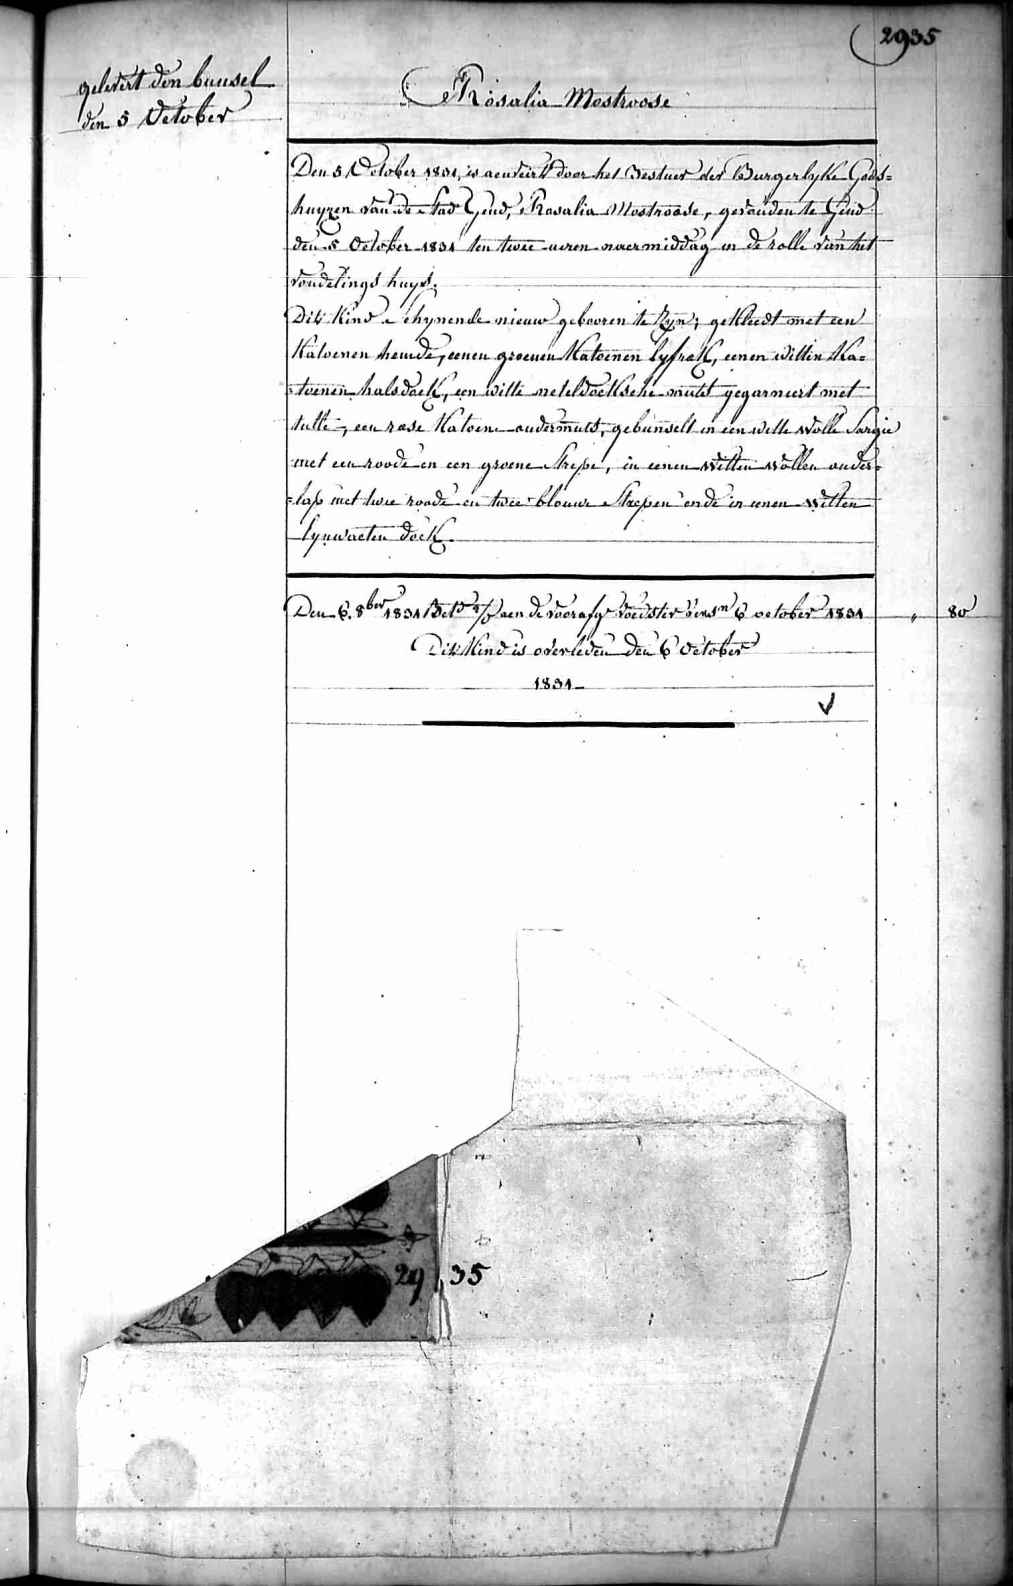 2935
gelevert den bunsel
den 5 October
Rosalia Mostroose
Den 5 October 1831, is aenveirt door het Bestuer der Burgerlyke Gods=
huyzen van de stad Gend, Rosalia Mostroose, gevonden te Gend
den 5 October 1831 ten twee ueren naermiddag in de rolle van het
vondelings huys.
Dit kind schynende nieuw gebooren te zyn; gekleedt met een
katoenen hemde, eenen groenen katoenen lyfrok, eenen witten ka=
=toenen halsdoek, een witte neteldoeksche muts gegarneert met
tulle, een rose katoene ondermuts, gebunselt in een witte wolle sargie
met een roode en een groene strepe, in eenen witten wollen onder=
=lap met twee roode en twee blouwe strepen ende in eenen witten
lynwaeten doek.
Den 6 8ber 1831 aen de voedster 6 october 1831 " 80
Dit kind is overleden den 6 October
1831
29 35